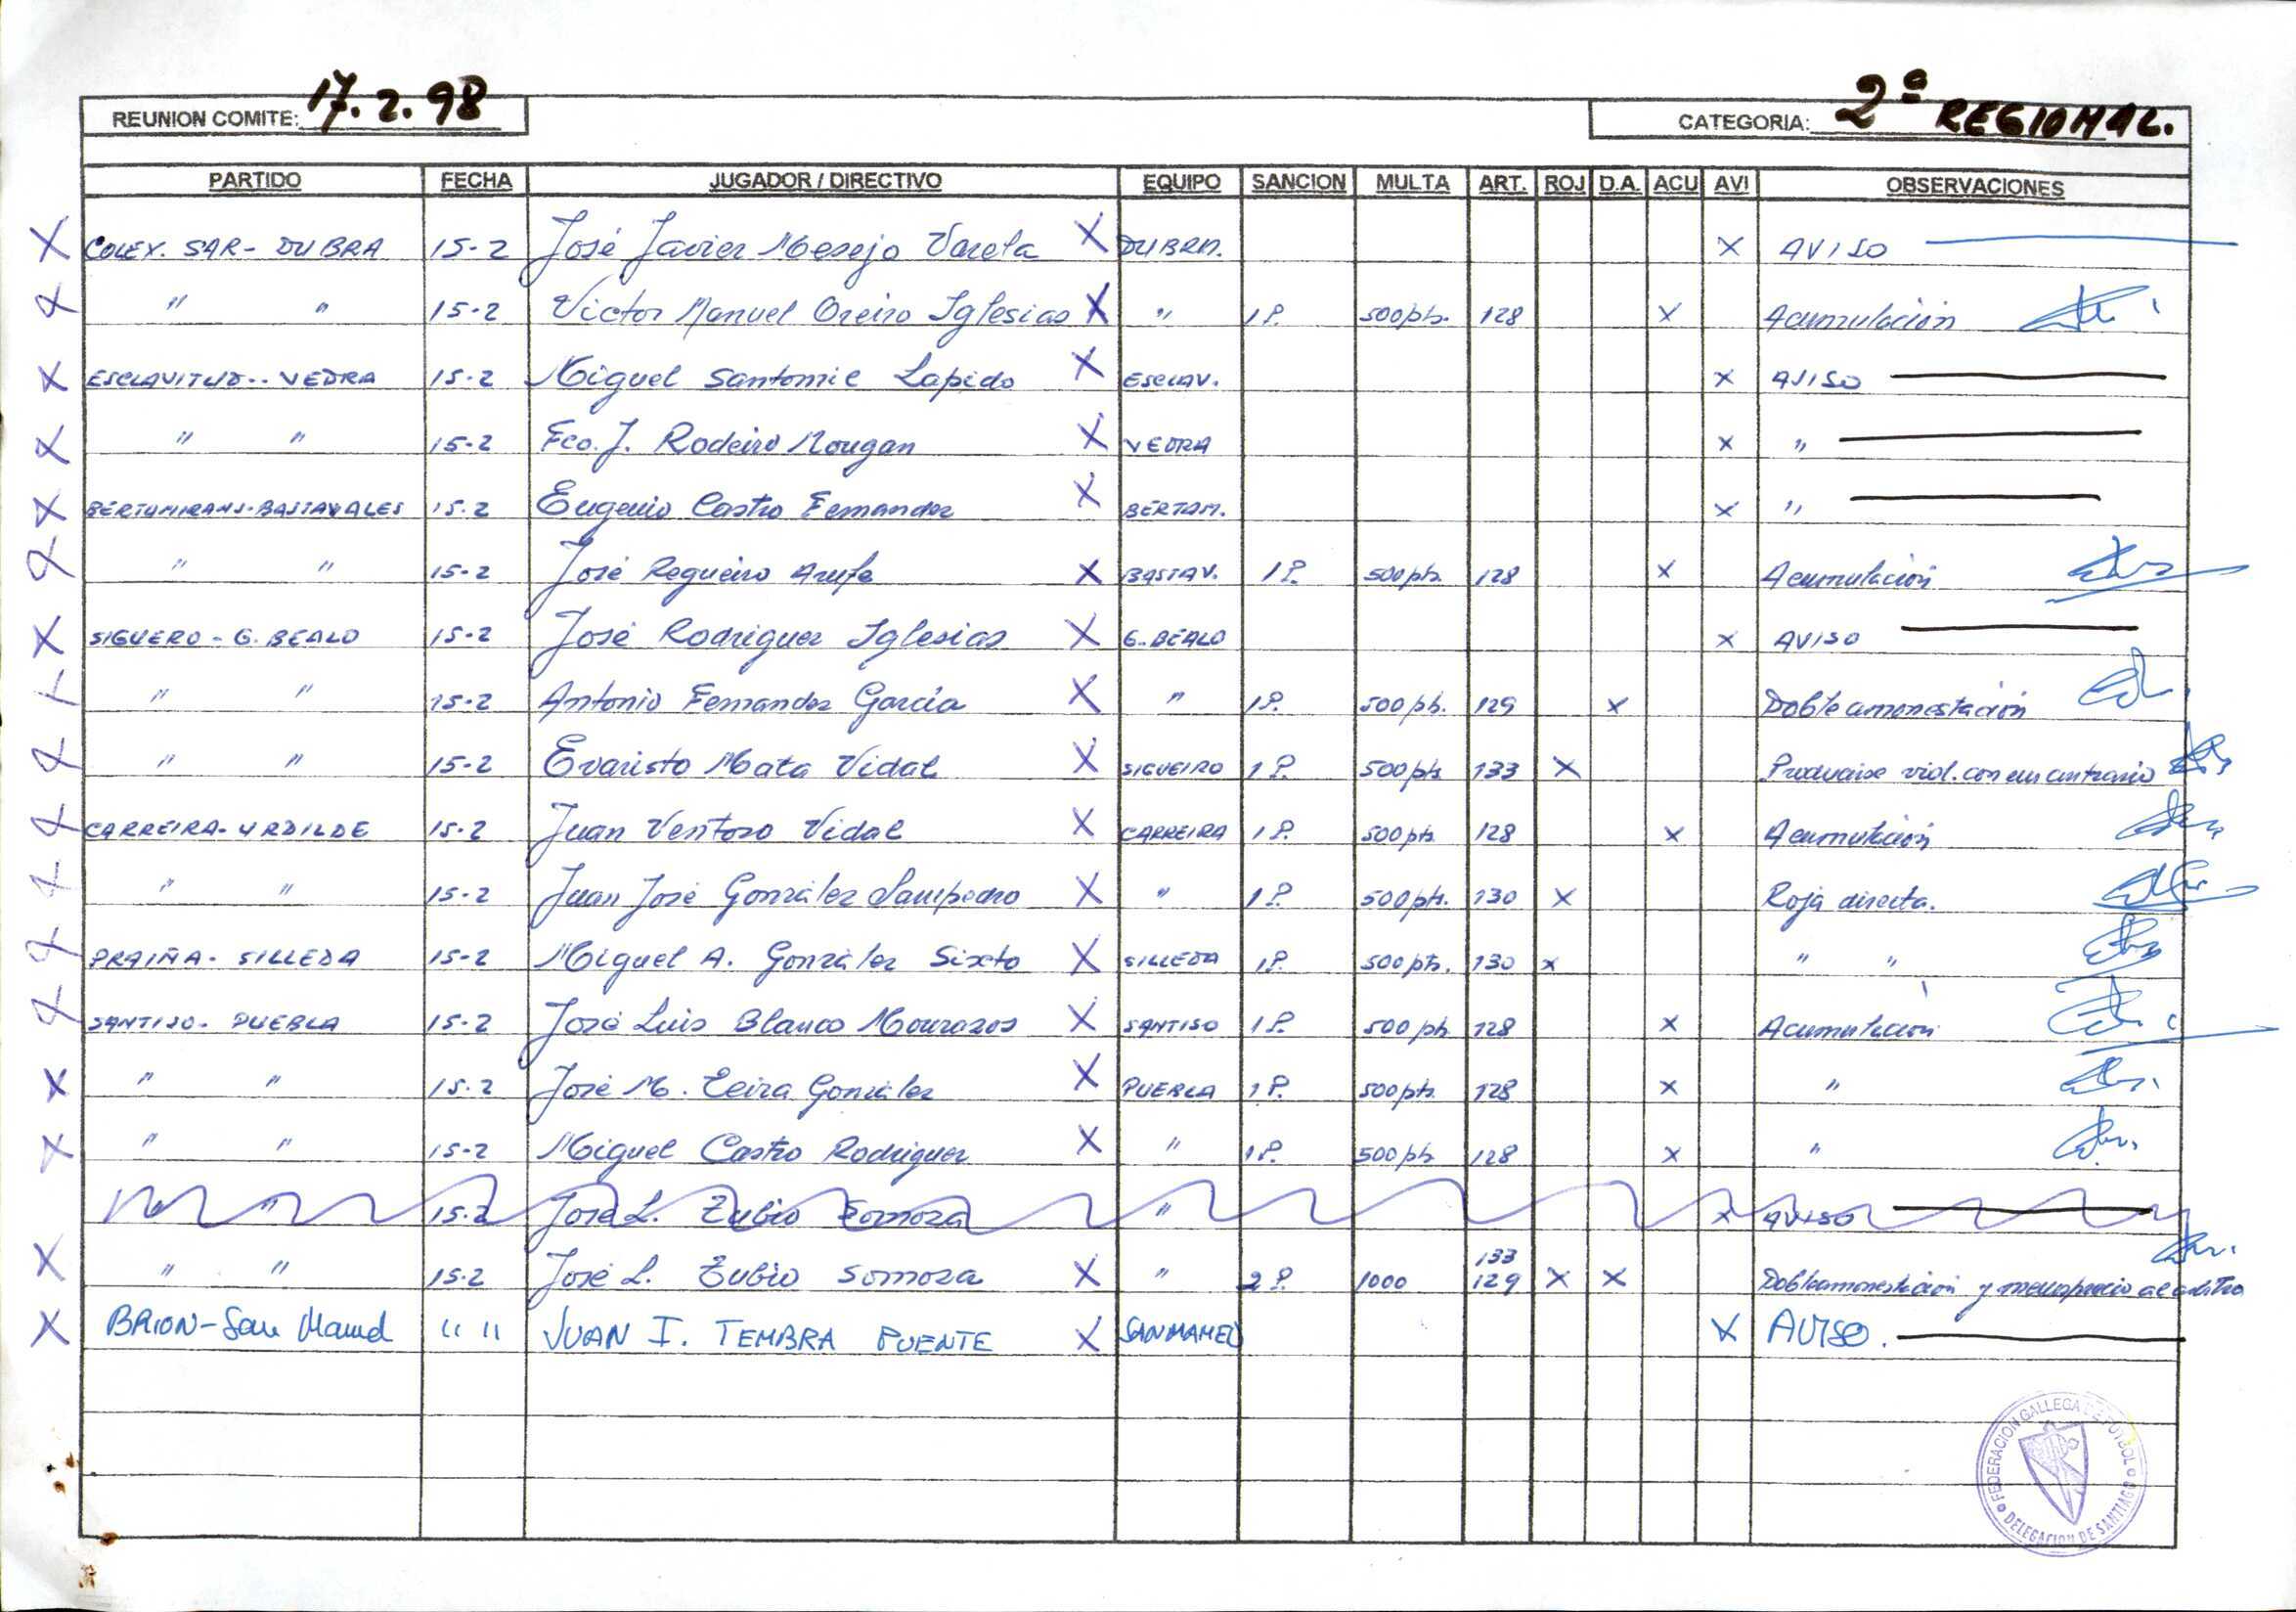 REUNION COMITE: 17.2.98 CATEGORIA: 2ª REGIONAL.
PARTIDO FECHA JUGADOR / DIRECTIVO EQUIPO SANCION MULTA ART. ROJ D.A. ACU AVI OBSERVACIONES
X COLEX. SAR - DUBRA 15-2 José Javier Mesejo Varela X DUBRA. X AVISO
X " " 15-2 Victor Manuel Oreiro Iglesias X " 1P. 500pts. 128 X Acumulación
X ESCLAVITUD.. VEDRA 15-2 Miguel Santomil Lapido X ESCLAV. X AVISO
X " " 15-2 Fco. J. Rodeiro Nougan X VEDRA X "
X BERTAMIRANS-BASTAVALES 15-2 Eugenio Castro Fernandez X BERTAM. X "
X " " 15-2 José Regueiro Arufe X BASTAV. 1P. 500pts. 128 X Acumulación
X SIGUERO - G. BEALO 15-2 José Rodriguez Iglesias X G. BEALO X AVISO
X " " 15-2 Antonio Fernandez García X " 1P. 500pts. 129 X Doble amonestación
X " " 15-2 Evaristo Mata Vidal X SIGUEIRO 1P. 500pts 133 X Producirse viol. con un contrario
X CARREIRA - URDILDE 15-2 Juan Ventoso Vidal X CARREIRA 1P. 500pts. 128 X Acumulación
X " " 15-2 Juan José González Sampedro X " 1P. 500pts. 130 X Roja directa.
X PRAIÑA - SILLEDA 15-2 Miguel A. González Sixto X SILLEDA 1P. 500pts. 130 X " "
X SANTISO - PUEBLA 15-2 José Luis Blanco Mourazos X SANTISO 1P. 500pts. 128 X Acumulación
X " " 15-2 José M. Leira González X PUEBLA 1P. 500pts. 128 X "
X " " 15-2 Miguel Castro Rodriguez X " 1P. 500pts 128 X "
" 15-2 José L. Zubio Somoza " X AVISO
133
X " " 15-2 José L. Zubio Somoza X " 2P. 1000 129 X X Doble amonestación y menosprecio al arbitro
X BRION - San Mamed " " JUAN I. TEMBRA PUENTE X SAN MAMED X AVISO.
FEDERACION GALLEGA DE FUTBOL
DELEGACION DE SANTIAGO